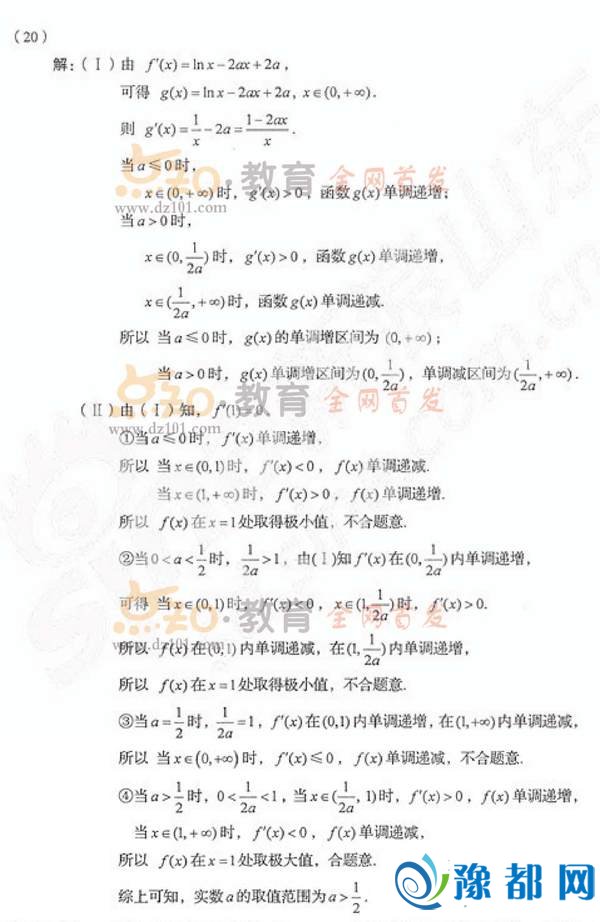 （20）
解：（Ⅰ）由 f′(x)=ln x−2ax+2a，
可得 g(x)=ln x−2ax+2a, x∈(0,+∞).
则 g′(x)=1/x−2a=(1−2ax)/x.
当a≤0时，
点知·教育 全网首发
x∈(0,+∞)时，g′(x)>0，函数g(x)单调递增；
www.dz101.com
当a>0时，
x∈(0,1/2a)时，g′(x)>0，函数g(x)单调递增，
x∈(1/2a,+∞)时，函数g(x)单调递减.
所以 当a≤0时，g(x)的单调增区间为(0,+∞)；
当a>0时，g(x)单调增区间为(0,1/2a)，单调减区间为(1/2a,+∞).
点知·教育 全网首发
（Ⅱ）由（Ⅰ）知，f′(1)=0.
www.dz101.com
①当a≤0时，f′(x)单调递增.
所以 当x∈(0,1)时，f′(x)<0，f(x)单调递减.
当x∈(1,+∞)时，f′(x)>0，f(x)单调递增.
所以 f(x)在x=1处取得极小值，不合题意.
②当0<a<1/2时，1/2a>1，由(Ⅰ)知f′(x)在(0,1/2a)内单调递增，
点知·教育 全网首发
可得 当x∈(0,1)时，f′(x)<0，x∈(1,1/2a)时，f′(x)>0.
www.dz101.com
所以 f(x)在(0,1)内单调递减，在(1,1/2a)内单调递增，
所以 f(x)在x=1处取得极小值，不合题意.
③当a=1/2时，1/2a=1，f′(x)在(0,1)内单调递增，在(1,+∞)内单调递减，
所以 当x∈(0,+∞)时，f′(x)≤0，f(x)单调递减，不合题意.
④当a>1/2时，0<1/2a<1，当x∈(1/2a,1)时，f′(x)>0，f(x)单调递增，
当x∈(1,+∞)时，f′(x)<0，f(x)单调递减，
所以 f(x)在x=1处取极大值，合题意.
综上可知，实数a的取值范围为a>1/2.
豫都网